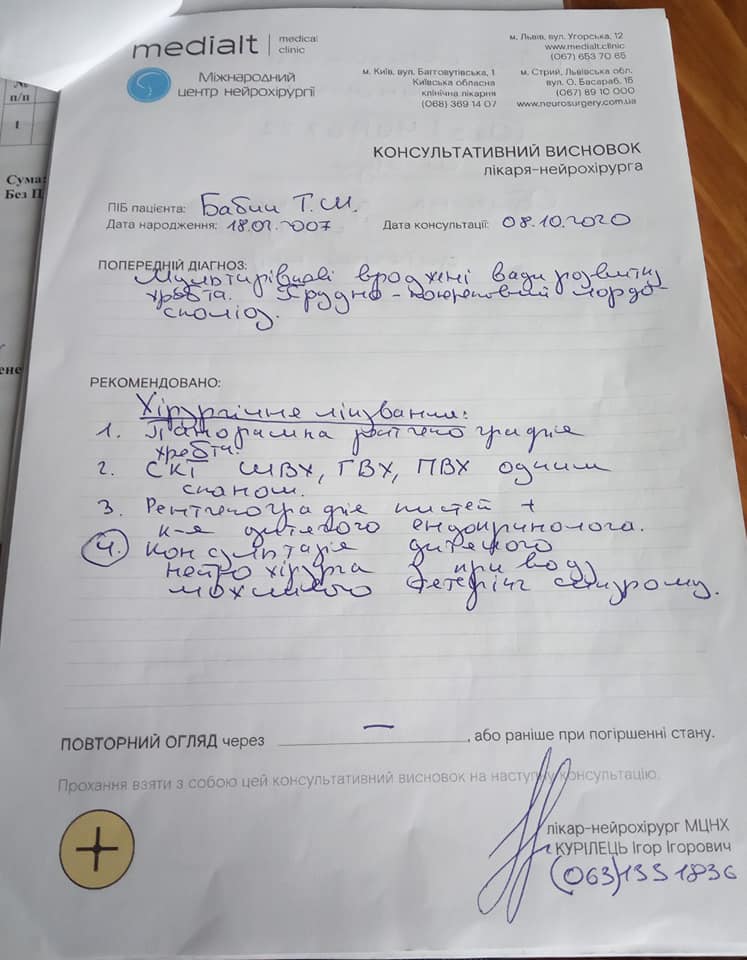 medialt | medical clinic
м. Львів, вул. Угорська, 12
www.medialt.clinic
(067) 653 70 65
Міжнародний
центр нейрохірургії
м. Київ, вул. Багговутівська, 1
Київська обласна
клінічна лікарня
(068) 369 14 07
м. Стрий, Львівська обл.
вул. О. Басараб, 15
(067) 89 10 000
www.neurosurgery.com.ua
№
п/п
1
Сума:
Без П
КОНСУЛЬТАТИВНИЙ ВИСНОВОК
лікаря-нейрохірурга
ПІБ пацієнта: Бабин Т.М.
Дата народження: 18.02.2007 Дата консультації: 08.10.2020
ПОПЕРЕДНІЙ ДІАГНОЗ:
Мультирівневі вроджені вади розвитку
хребта. Грудно-поперековий лордо-
сколіоз.
РЕКОМЕНДОВАНО:
Хірургічне лікування:
1. Панорамна рентгенографія
хребта.
2. СКТ ШВХ, ГВХ, ПВХ одним
сканом.
3. Рентгенографія кистей +
к-я дитячого ендокринолога.
4. Консультація дитячого
нейрохірурга з приводу
можливого тетерінг синдрому.
ПОВТОРНИЙ ОГЛЯД через — , або раніше при погіршенні стану.
Прохання взяти з собою цей консультативний висновок на наступну консультацію.
лікар-нейрохірург МЦНХ
КУРІЛЕЦЬ Ігор Ігорович
(063)1331836